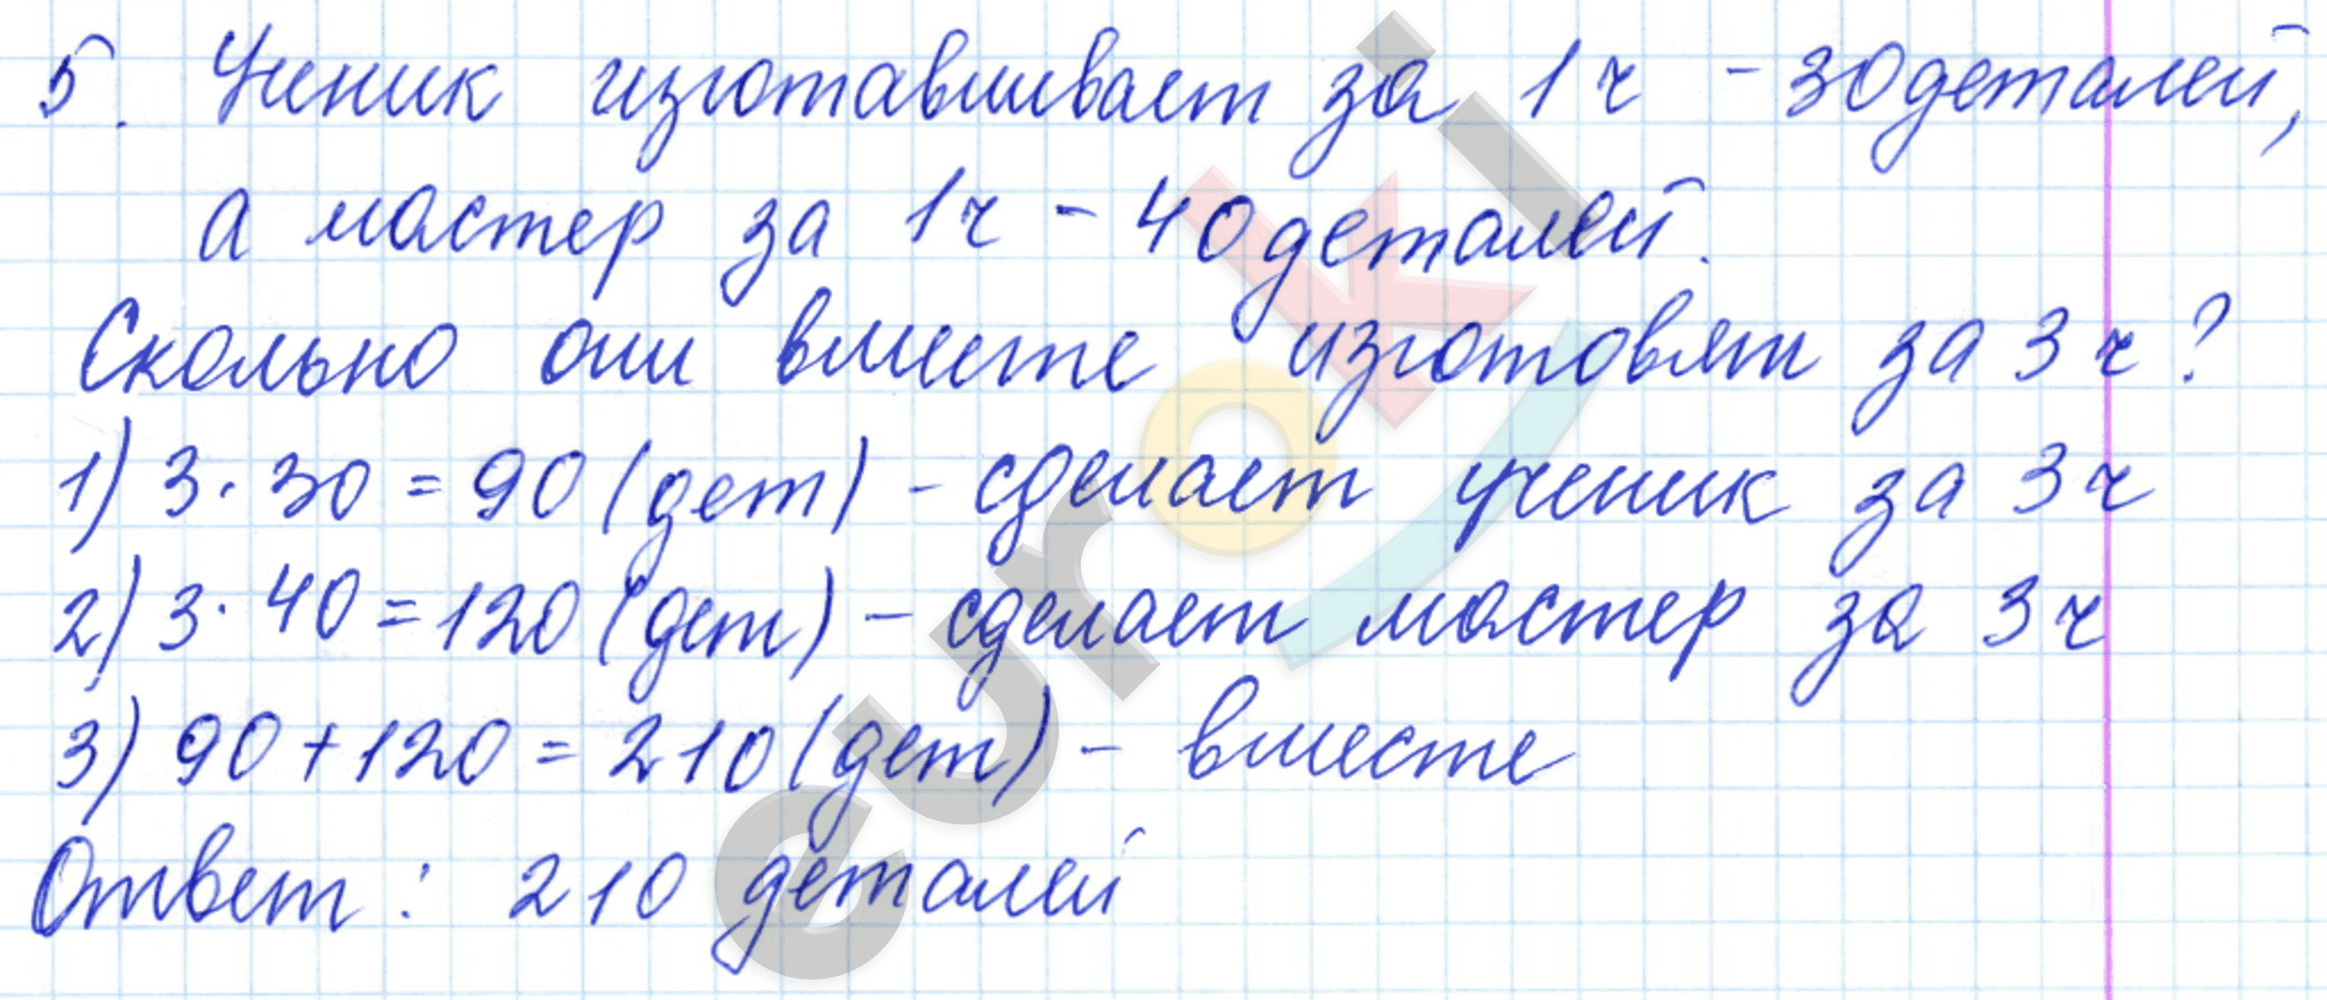 5. Ученик изготавливает за 1 ч - 30 деталей,
а мастер за 1ч - 40 деталей.
Сколько они вместе изготовят за 3 ч?
1) 3 · 30 = 90 (дет) - сделает ученик за 3 ч
2) 3 · 40 = 120 (дет) - сделает мастер за 3 ч
3) 90 + 120 = 210 (дет) - вместе
Ответ: 210 деталей
euroki